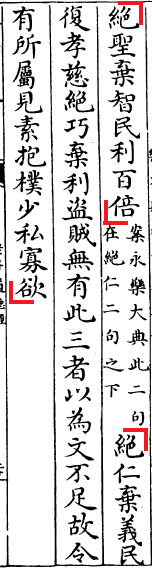 絕聖棄智民利百倍案永樂大典此二句在絕仁二句之下絕仁棄義民
復孝慈絕巧棄利盜賊無有此三者以為文不足故令
有所屬見素抱樸少私寡欲